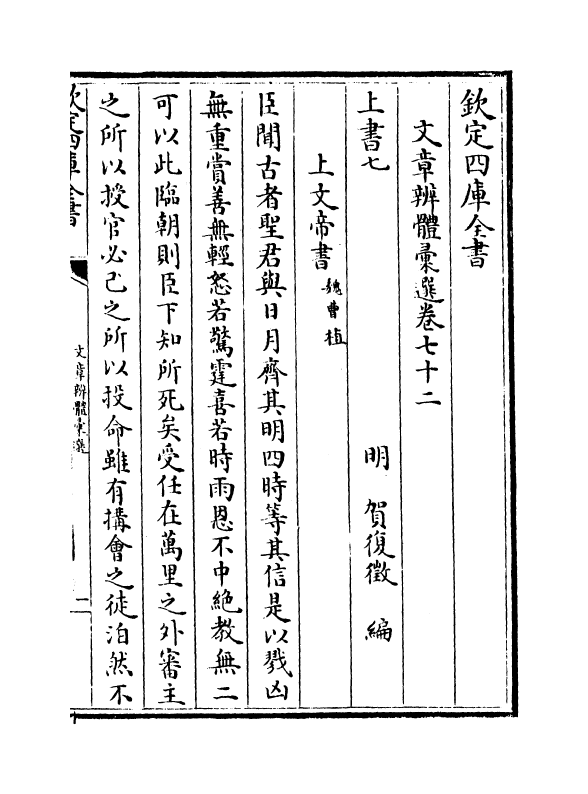 欽定四庫全書
文章辨體彙選卷七十二
明 賀復徵 編
上書七
上文帝書 魏曹植
臣聞古者聖君與日月齊其明四時等其信是以戮凶
無重賞善無輕怒若驚霆喜若時雨恩不中絶教無二
可以此臨朝則臣下知所死矣受任在萬里之外審主
之所以授官必己之所以投命雖有搆會之徒泊然不
欽定四庫全書
文章辨體彙選
一